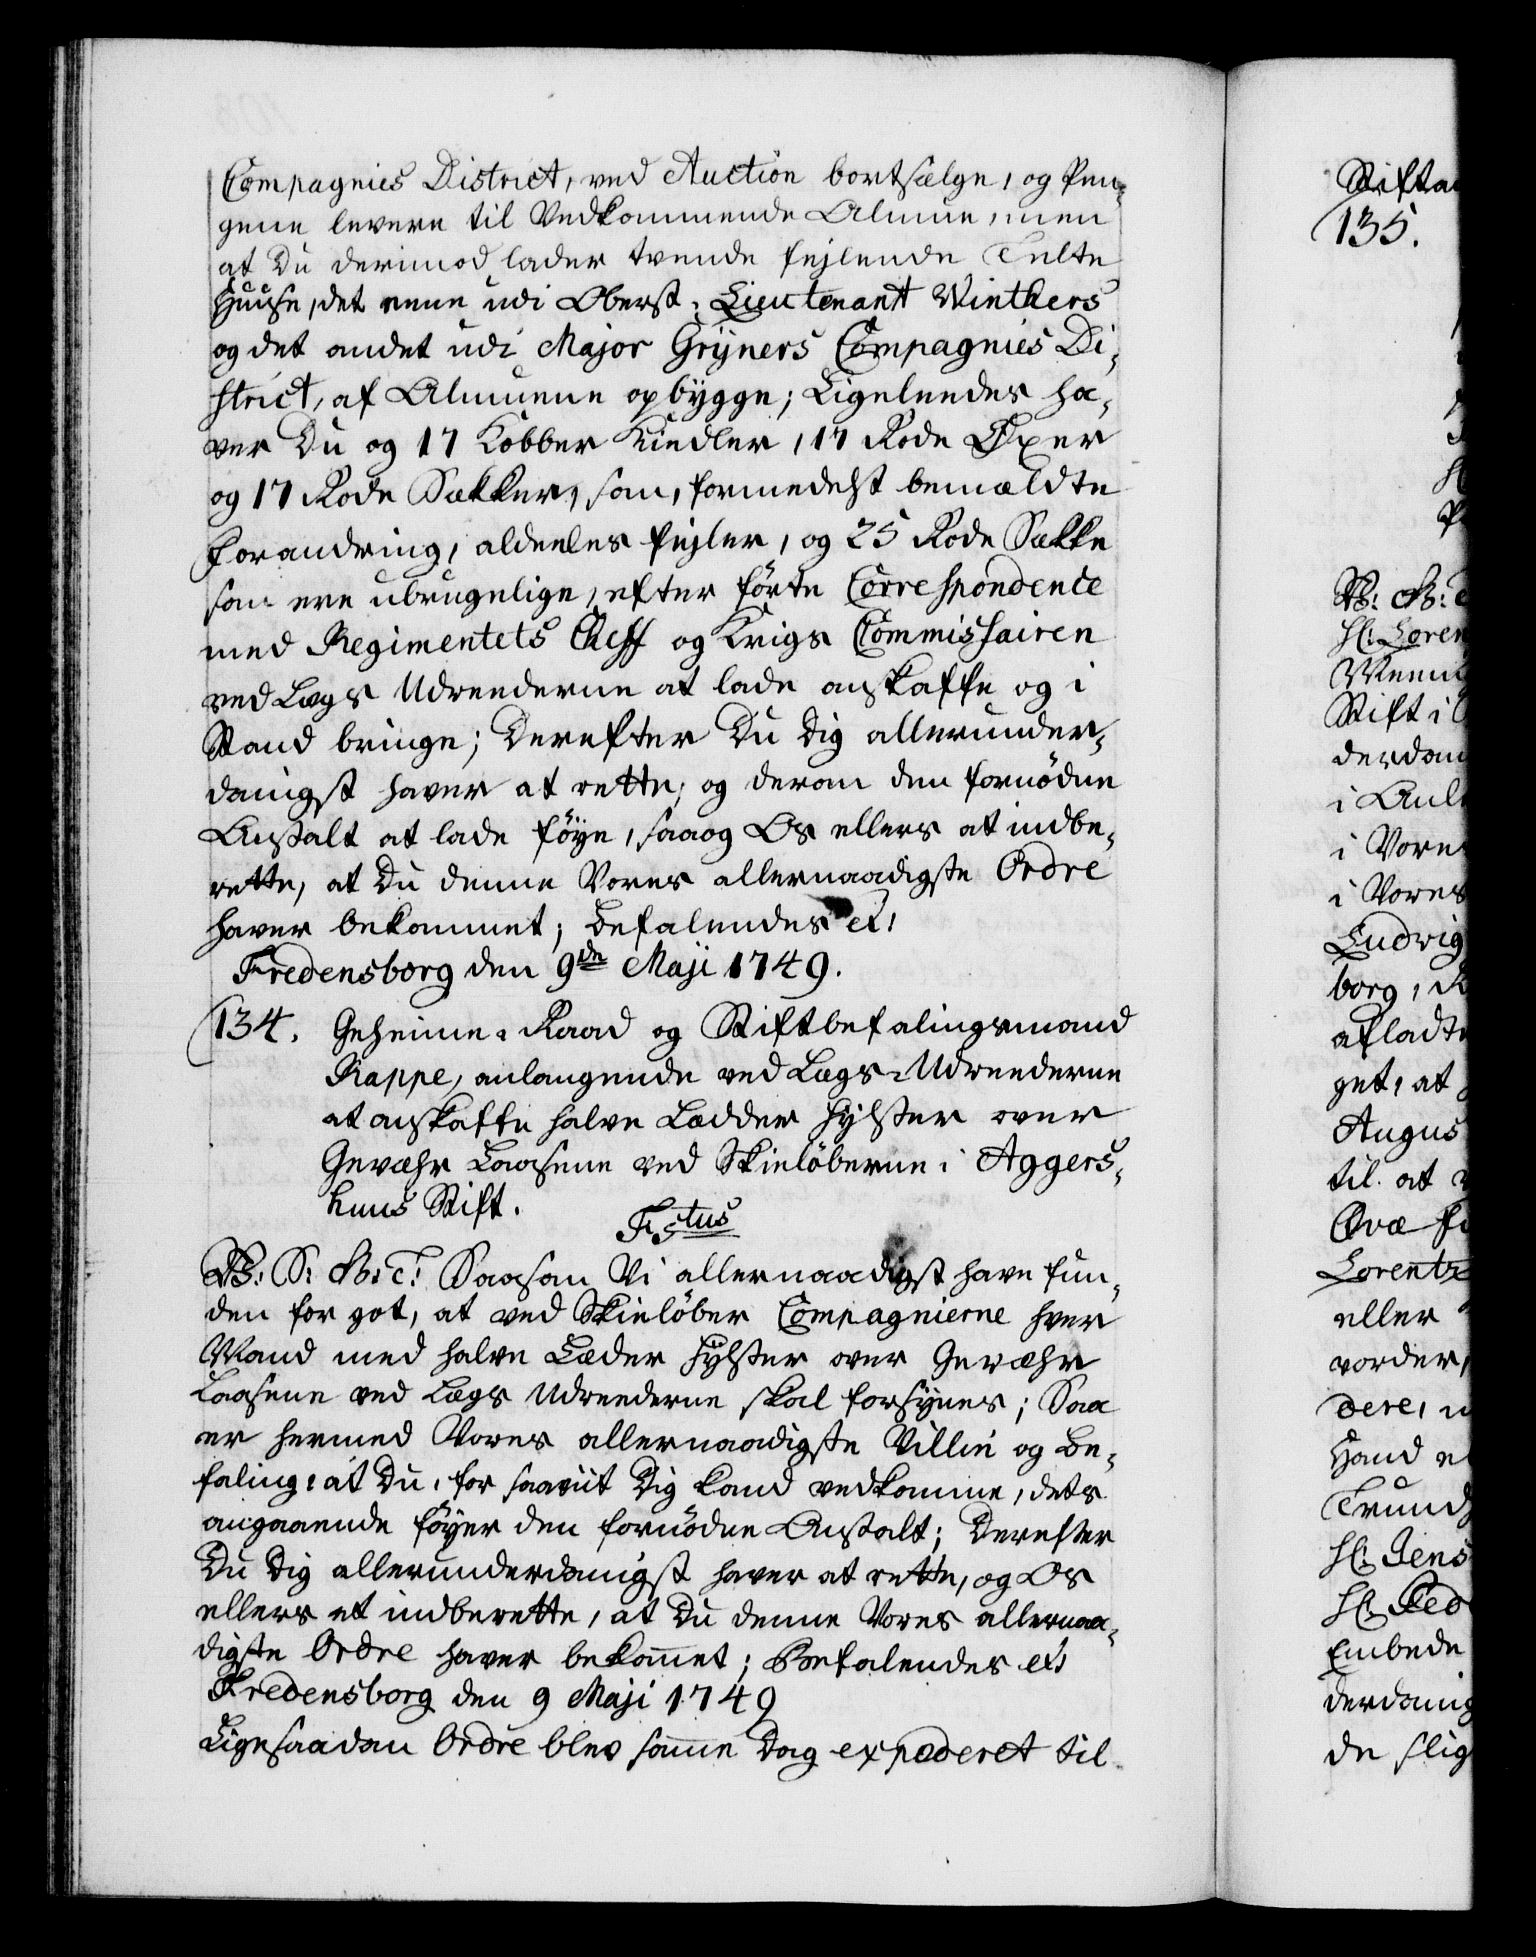 Compagnies District, ved Auction bortsælge, og Pen-
gene levere til Vedkommende Almue, men
at Du derimod lader tvende fejlende Telte
Huuse, det eene udi Oberst-Lieutenant Winthers
og det andet udi Major Grÿners Compagnies Di-
strict, af Almuene opbygge; Ligeleedes ha-
ver Du og 17 Kobber Kiedler, 17 Rode Øxer
og 17 Rode Sækker, som, formedelst bemældte
Forandring, aldeeles fejler, og 25 Rode Sække
som ere ubrugelige, efter förte Correspondence
med Regimentets Cheff og Krigs Commissairen
ved Lægs Udreederne at lade anskaffe og i
Stand bringe; Derefter Du dig allerunder-
danigst haver at rette, og derom den fornödne
Anstalt at lade föye, saa og Os ellers at indbe-
rette, at Du denne Vores allernaadigste Ordre
haver bekommet; Befalendes etc
Fredensborg den 9de Maji 1749.
134. Geheime-Raad og Stiftbefalingsmand
Rappe, anlangende ved Lægs-Udreederne
at anskaffe halve Lædder Hylster over
Gevæhr Laasene ved Skielöberne i Aggers-
huus Stift.
F 5tus
V: S: G: T: Saasom Vi allernaadigst have fun-
den for got, at ved Skielöber Compagnierne hver
Mand med halve Læder Hÿlster over Gevæhr
Laasene ved Lægs Udreederne skal forsynes; Saa
er hermed Vores allernaadigste Villie og Be-
faling, at Du, for saaviit Dig kand vedkomme, dets
angaaende föyer den fornödne Anstalt; Derefter
Du Dig allerunderdanigst haver at rette, og Os
ellers at indberette, at Du denne Vores allernaa-
digste Ordre haver bekomet; Befalendes etc
Fredensborg den 9 Maji 1749
Ligesaadan Ordre blev samme Dag expederet til
135.
Stift i
i Vores
Ludwig
borg,
get, at
til at
Lorentz
eller
vorder,
dere,
Haand
Hr. Jens
Hr. Ped
Embede